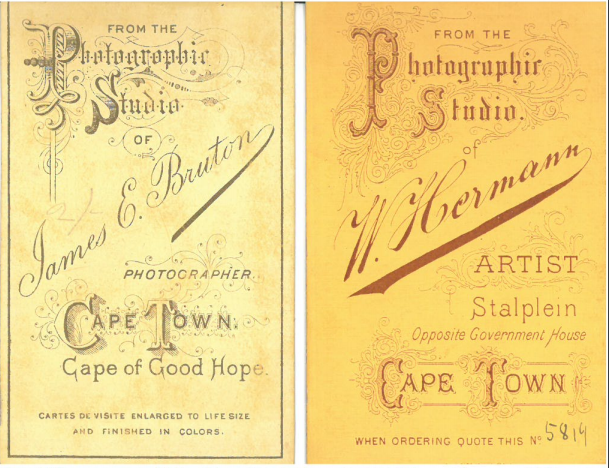 FROM THE
Photographic
Studio.
OF
James E. Bruton
2/-
PHOTOGRAPHER.
CAPE TOWN.
Cape of Good Hope.
CARTES DE VISITE ENLARGED TO LIFE SIZE
AND FINISHED IN COLORS.
FROM THE
Photographic
Studio.
of
W. Hermann
ARTIST
Stalplein
Opposite Government House
CAPE TOWN
WHEN ORDERING QUOTE THIS No 5819